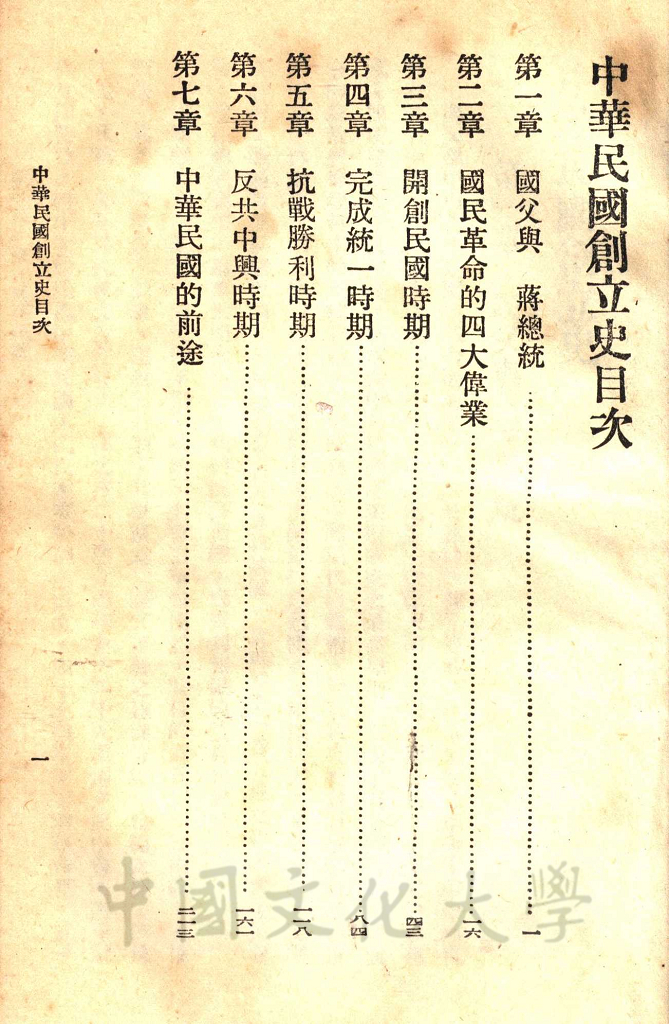 中華民國創立史目次
第一章 國父與 蔣總統……一
第二章 國民革命的四大偉業……一六
第三章 開創民國時期……四三
第四章 完成統一時期……八四
第五章 抗戰勝利時期……一一八
第六章 反共中興時期……一六一
第七章 中華民國的前途……二一三
中華民國創立史目次
一
中國文化大學